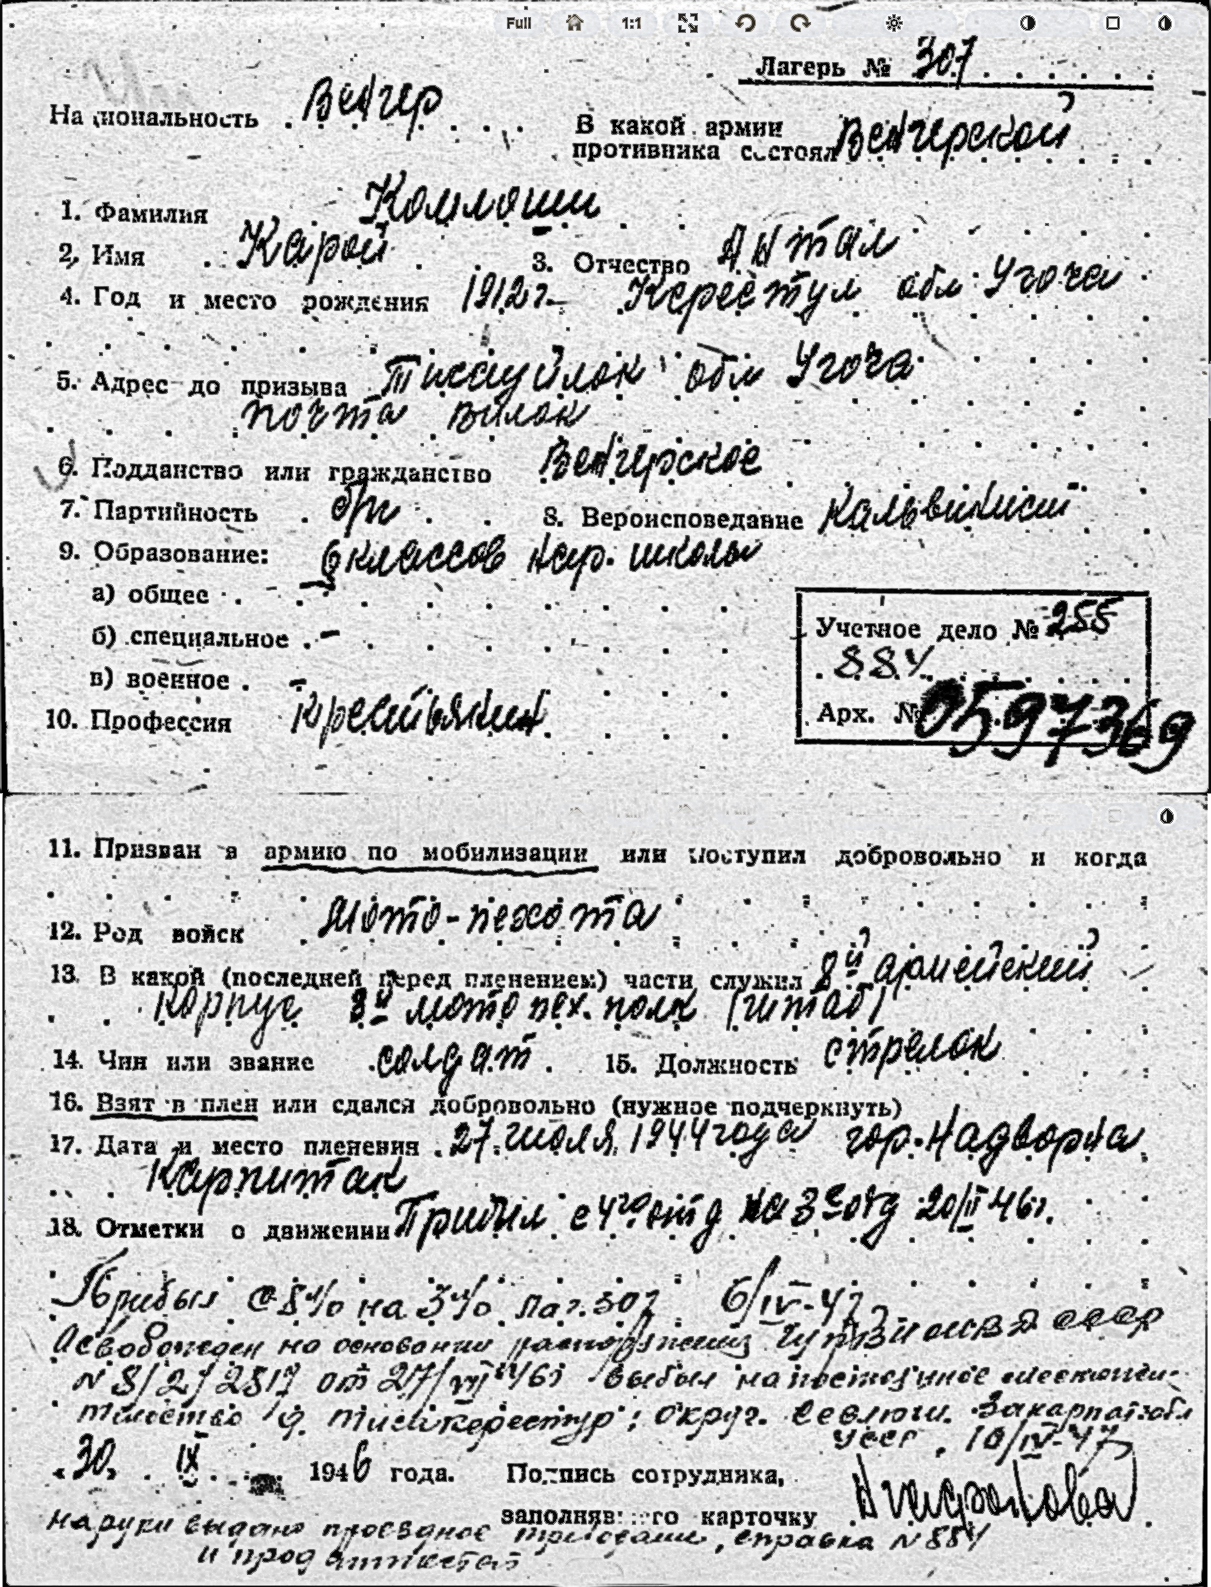 Full 1:1
Лагерь № 307
Национальность Венгер
В какой армии
противника состоял Венгерской
1. Фамилия Комлоши
2. Имя Карой 3. Отчество Антал
4. Год и место рождения 1912 г. Керестур обл. Угоча
5. Адрес до призыва Тисауйлак обл Угоча
почта Вилок
6. Подданство или гражданство Венгерское
7. Партийность б/п 8. Вероисповедание Кальвинист
9. Образование: 6 классов нар. школы
а) общее
б) специальное -
в) военное -
10. Профессия Крестьянин
Учетное дело № 255
884
Арх. № 0597369
11. Призван в армию по мобилизации или поступил добровольно и когда
12. Род войск Мото-пехота
13. В какой (последней перед пленением) части служил 8й армейский
корпус 8й мотопех. полк (штаб)
14. Чин или звание солдат 15. Должность стрелок
16. Взят в плен или сдался добровольно (нужное подчеркнуть)
17. Дата и место пленения 27. июля 1944 года гор. Надворна
18. Отметки о движении Прибыл с 4го отд на 3е отд 20/II 46г.
Прибыл с 8 л/о на 3 л/о лаг. 307 6/IV-47
Освобожден на основании распоряжения СССР
N 8/2/2517 от 27/VII 46г выбыл на постоянное местожи-
тельство округ. Севлюш. Закарпат. обл
УССР, 10/IV-47
30 IX 1946 года. Подпись сотрудника,
заполнявшего карточку
На руки выдано проездное требование, справка N 884
и прод аттестат